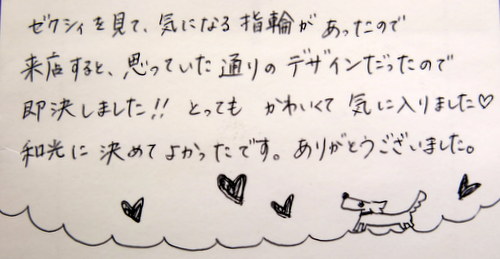 ゼクシィを見て、気になる指輪があったので
来店すると、思っていた通りのデザインだったので
即決しました!! とっても かわいくて 気に入りました♡
和光に決めてよかったです。ありがとうございました。